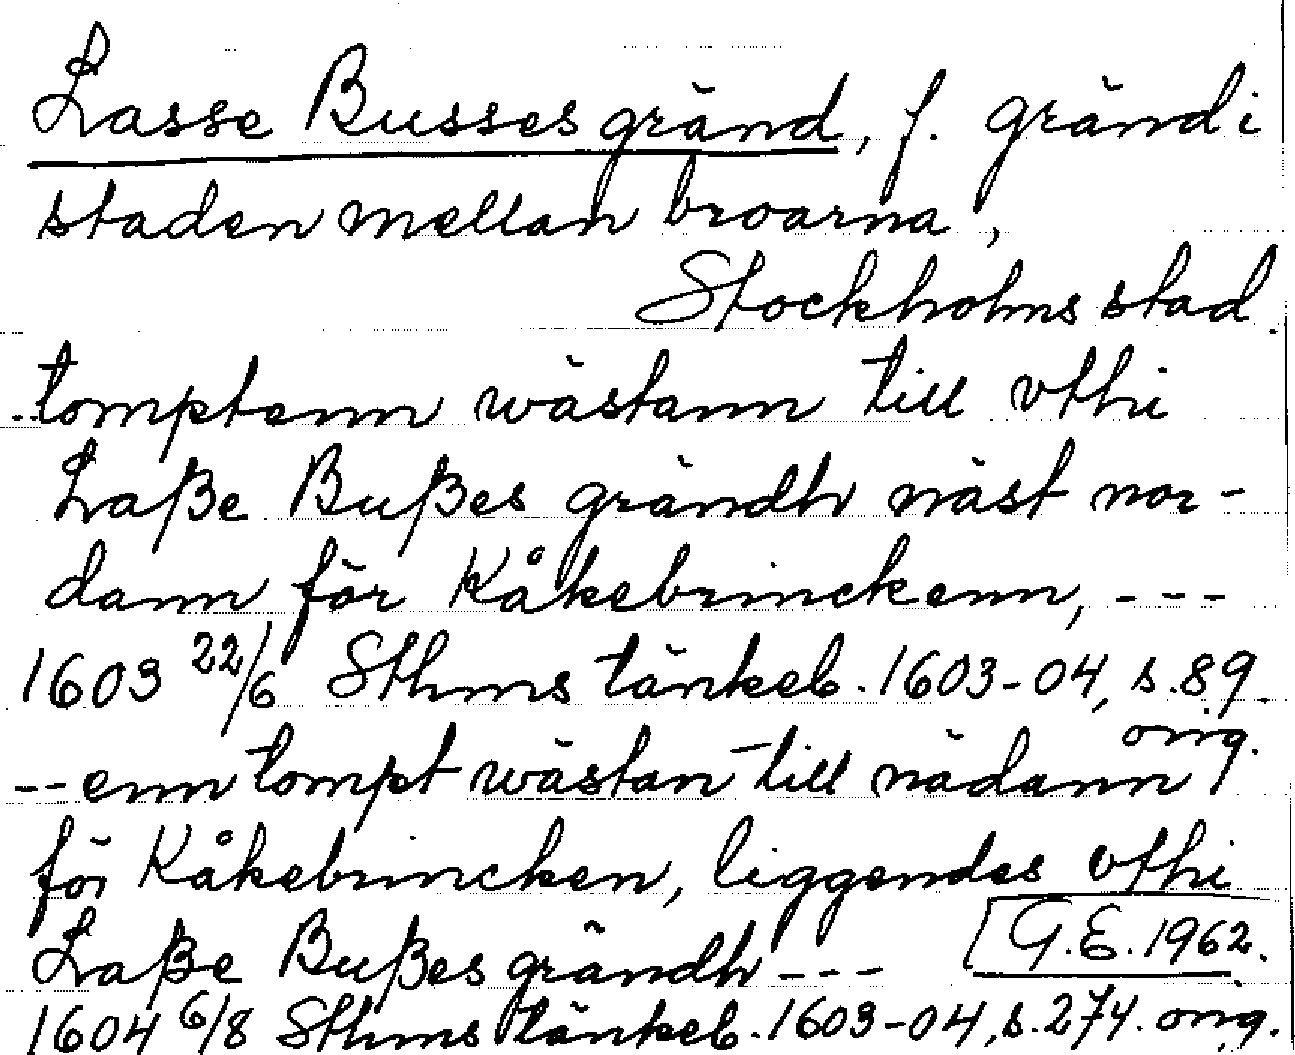 Lasse Busses gränd, f. gränd i
staden mellan broarna,
Stockholms stad.
tomptenn wästann till vthi
Laße Bußes grändh näst nor-
dann för Kåkebrinckenn, ---
1603 22/6 Sthms tänkeb. 1603-04, s. 89
orig.
-- enn tompt wästan till nädann
för Kåkebrincken, liggendes vthi
Laße Bußes grändh ---
G.E. 1962.
1604 6/8 Sthms tänkeb. 1603-04, s. 274. orig.